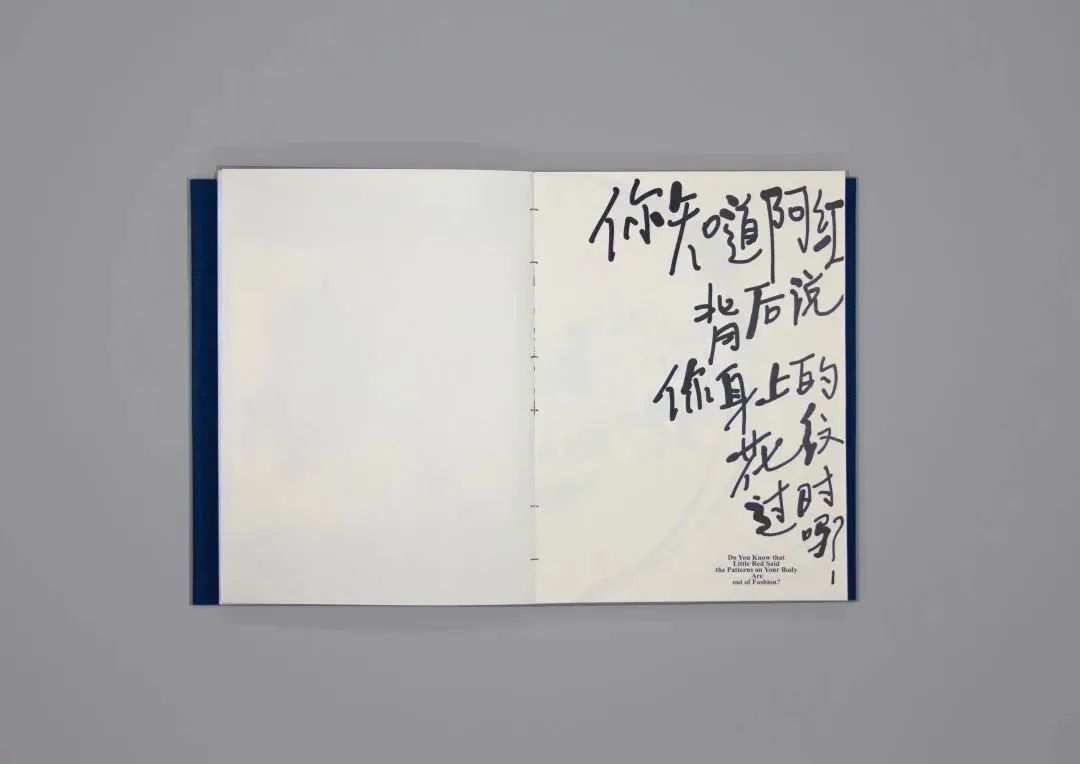 你知道阿红
背后说
你身上的
花纹
过时
吗?
Do You Know that
Little Red Said
the Patterns on Your Body
Are
out of Fashion?